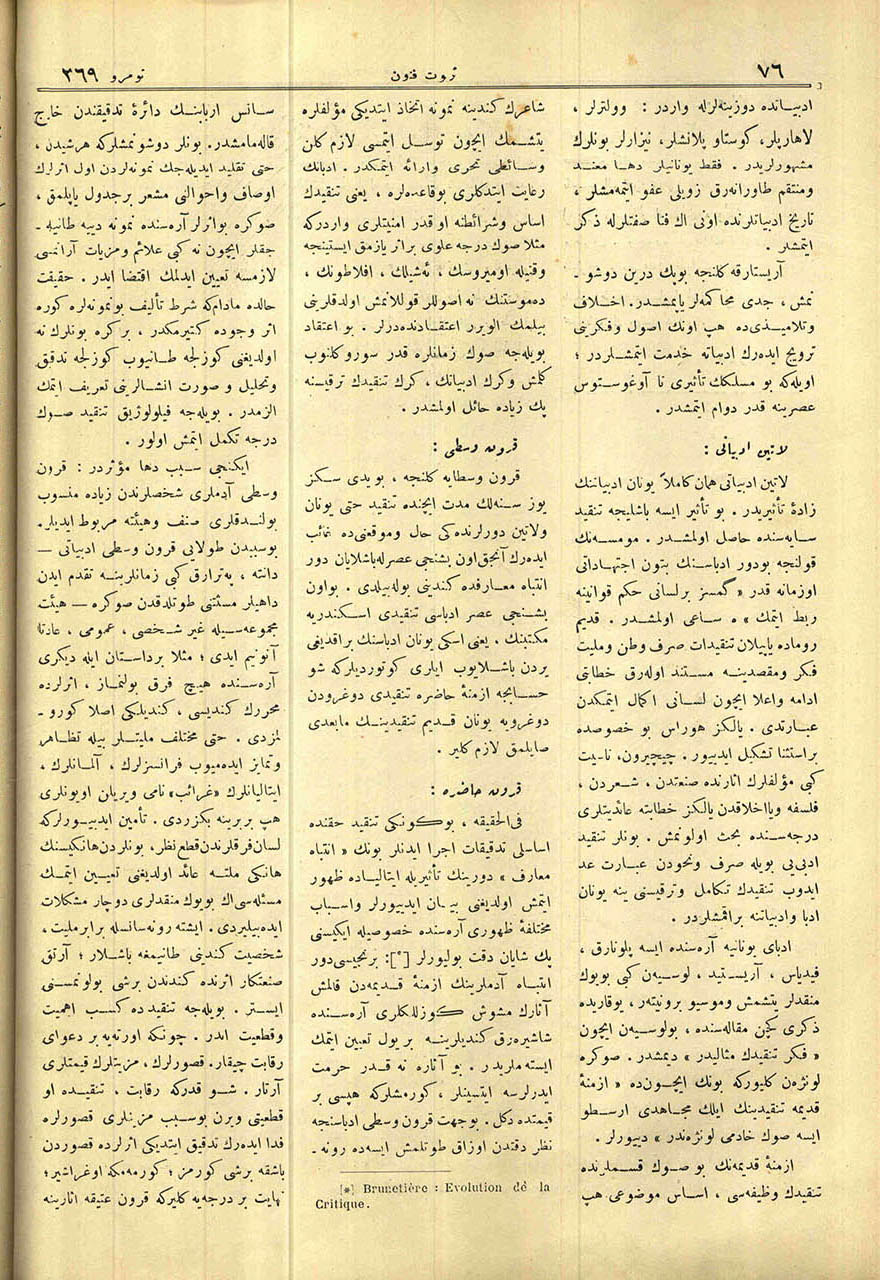 ٧٦
ثروت فنون
نومرو ٣٦٩
ادبیاتده دوزینه‌لرله واردر : وولترلر ،
لاهارپلر، کوستاو پلانشلر، نیزارلر بونلرك
مشهورلریدر. فقط یونانیلر دها معند
ومنتقم طاورانه‌رق زوئیلی عفو ایتمه‌مشلر ،
تاریخ ادبیاتلرنده اونی اك فنا صفتلرله ذکر
ایتمشلر .
آریستارقه کلنجه بویك درین دوشو ـ
نمش ، جدی محاکمه‌لر یاپمشدر. اخلاف
وتلامیذی‌ده هپ اونك اصول وفکرینی
ترویج ایده‌رك ادبیاته خدمت ایتمشلردر ؛
اویله‌که بو مسلکك تأثیری تا آوغوستوس
عصرینه قدر دوام ایتمشدر.
لاتین ادبیاتی :
لاتین ادبیاتی همان کاملاً یونان ادبیاتنك
زادهٔ تأثیریدر. بو تأثیر ایسه باشلیجه تنقید
سایه‌سنده حاصل اولمشدر. مومسه‌نك
قولنجه بودور ادباسنك بتون اجتهاداتی
اوزمانه قدر « گمسز برلسانی حکم قوانینه
ربط ایتمك » ه ساعی اولمشدر. قدیم
روماده یاپیلان تنقیدات صرف وطن وملیت
فکر ومقصدینه مستند اوله‌رق خطابتی
ادامه واعلا ایچون لسانی اکمال ایتمکدن
عبارتدی. یالکز هوراس بو خصوصده
براستثنا تشکیل ایدییور. چیچیرون، تاسیت
کبی مؤلفلرك اثارنده صنعتدن ، شعردن ،
فلسفه ویااخلاقدن یالکز خطابته عائدیتلری
درجه‌سنده بحث اولونمش . بونلر تنقید
ادبی‌یی بویله صرف ونحودن عبارت عد
ایدوب تنقیدك تکامل وترقیسنی ینه یونان
ادبا وادبیاتنه براقمشلردر.
ادبای یونانیه آره‌سنده ایسه پلوتارق ،
فیدیاس ، آریستید ، لوسیه‌ن کبی بویوك
منقدلر یتشمش وموسیو برونیته‌ر، یوقاریده
ذکری کچن مقاله‌سنده ، بولوسیه‌ن ایچون
« فکر تنقیدك مثالیدر » دیمشدر. صوکره
لونژه‌ن کلیورکه بونك ایچون‌ده « ازمنهٔ
قدیمه تنقیدینك ایلك مجاهدی ارسطو
ایسه صوك خادمی لونژه‌ندر » دییورلر.
ازمنهٔ قدیمه‌نك بو صوك قسملرنده
تنقیدك وظیفه‌سی ، اساس موضوعی هپ
شاعرك کندینه نمونه اتخاذ ایتدیکی مؤلفلره
یتشمك ایچون توسل ایتمسی لازم کلن
وسائطی تحری وارائه ایتمکدر. ادبانك
رعایت ایتدکلری بوقاعده‌لره ، یعنی تنقیدك
اساس وشرائطنه اوقدر امنیتلری واردرکه
مثلا صوك درجه علوی براثر یازمق ایستینجه
وقتیله اومیروسك ، ئه‌شیلك ، افلاطونك ،
ده‌موستنك نه اصوللر قوللانمش اولدقلرینی
بیلمك الویرر اعتقادنده‌درلر. بو اعتقاد
بویله‌جه صوك زمانلره قدر سوروکلنوب
کلمش وکرك ادبیاتك ، کرك تنقیدك ترقیسنه
پك زیاده حائل اولمشدر.
قرون وسطی :
قرون وسطایه کلنجه ، بویدی سکز
یوز سنه‌لك مدت ایچنده تنقید حتی یونان
ولاتین دورلرنده‌کی حال وموقعنی‌ده غائب
ایده‌رك آنجق‌اون بشنجی عصرله‌باشلایان دور
انتباه معارفده کندینی بوله‌بیلدی. بواون
بشنجی عصر ادباسی تنقیدی اسکندریه
مکتبنك ، یعنی اسکی یونان ادباسنك براقدیغی
یردن باشلایوب ایلری کوتوردیلرکه شو
حسابجه ازمنهٔ حاضره تنقیدی دوغرودن
دوغرویه یونان قدیم تنقیدینك مابعدی
صایلمق لازم کلیر.
قرون حاضره :
فی‌الحقیقه ، بوکونکی تنقید حقنده
اساسلی تدقیقات اجرا ایدنلر بونك « انتباه
معارف » دورینك تأثیریله ایتالیاده ظهور
ایتمش اولدیغنی بیان ایدییورلر واسباب
مختلفهٔ ظهوری آره‌سنده خصوصیله ایکیسنی
پك شایان دقت بولیورلر [*]: برنجیسی‌دور
انتباه آدملرینك ازمنهٔ قدیمه‌دن قالمش
آثارك مشوش کوزللکلری آره‌سنده
شاشیره‌رق کندیلرینه بریول تعیین ایتمك
ایسته‌ملریدر. بو آثاره نه قدر حرمت
ایدرلرسه ایتسینلر ، کورمشلرکه هپسی بر
قیمتده دکل. بوجهت قرون وسطی ادباسنجه
نظر دقتدن اوزاق طوتلمش ایسه‌ده رونه ـ
[*] Brunetière : Evolution de la
Critique.
سانس اربابنك دائرهٔ تدقیقندن خارج
قاله‌مامشدر. بونلر دوشونمشلرکه هرشیدن ،
حتی تقلید ایدیله‌جك نمونه‌لردن اول اثرلرك
اوصاف واحوالنی مشعر برجدول یاپلمق ،
صوکره بواثرلر آره‌سنده نمونه دییه طانیه ـ
جقلر ایچون نه کبی علائم ومزیات آرانمسی
لازمسه تعیین ایدلمك اقتضا ایدر. حقیقت
حالده مادام‌که شرط تألیف بونمونه‌لره کوره
اثر وجوده کتیرمکدر ، برکره بونلرك نه
اولدیغنی کوزلجه طانیوب کوزلجه تدقیق
وتحلیل و صورت انشالرینی تعریف ایتمك
الزمدر. بویله‌جه فیلولوژیق تنقید صوك
درجه تکمل ایتمش اولور.
ایکنجی سبب دها مؤثردر : قرون
وسطی آدملری شخصلرندن زیاده منسوب
بولندقلری صنف وهیئته مربوط ایدیلر.
بوسببدن طولایی قرون وسطی ادبیاتی —
دانته ، په‌ترارق کبی زمانلرینه تقدم ایدن
داهیلر مستثنی طوتلدقدن صوکره — هیئت
مجموعه‌سیله غیر شخصی ، عمومی ، عادتا
آنونیم ایدی ؛ مثلا برداستان ایله دیکری
آره‌سنده هیچ فرق بولنماز ، اثرلرده
محررك کندیسی ، کندیلکی اصلا کورو ـ
لمزدی. حتی مختلف ملیتلر بیله تظاهر
وتمایز ایده‌میوب فرانسزلرك ، آلمانلرك ،
ایتالیانلرك «غرائب» نامی ویریلن اویونلری
هپ بربرینه بکزردی. تأمین ایدییورلرکه
لسان‌فرقلرندن‌قطع‌نظر، بونلردن‌هانکیسنك
هانکی ملته عائد اولدیغنی تعیین ایتمك
مسئله‌سی‌اك بویوك منقدلری دوچار مشکلات
ایده‌بیلیردی. ایشته رونه‌سانسله برابر ملیت ،
شخصیت کندینی طانیمغه باشلار ؛ آرتق
صنعتکار اثرنده کندندن برشی بولونمسنی
ایستر. بویله‌جه تنقیدده کسب اهمیت
وقطعیت ایدر. چونکه اورته‌یه بر دعوای
رقابت چیقار. قصورلرك ، مزیتلرك قیمتلری
آرتار. شو قدرکه رقابت ، تنقیده او
قطعیتی ویرن بوسبب مزیتلری قصورلره
فدا ایده‌رك تدقیق ایتدیکی اثرلرده قصوردن
باشقه برشی کورمز ؛ کورمه‌مکه اوغراشیر؛
نهایت بر درجه‌یه کلیرکه قرون عتیقه اثارینه